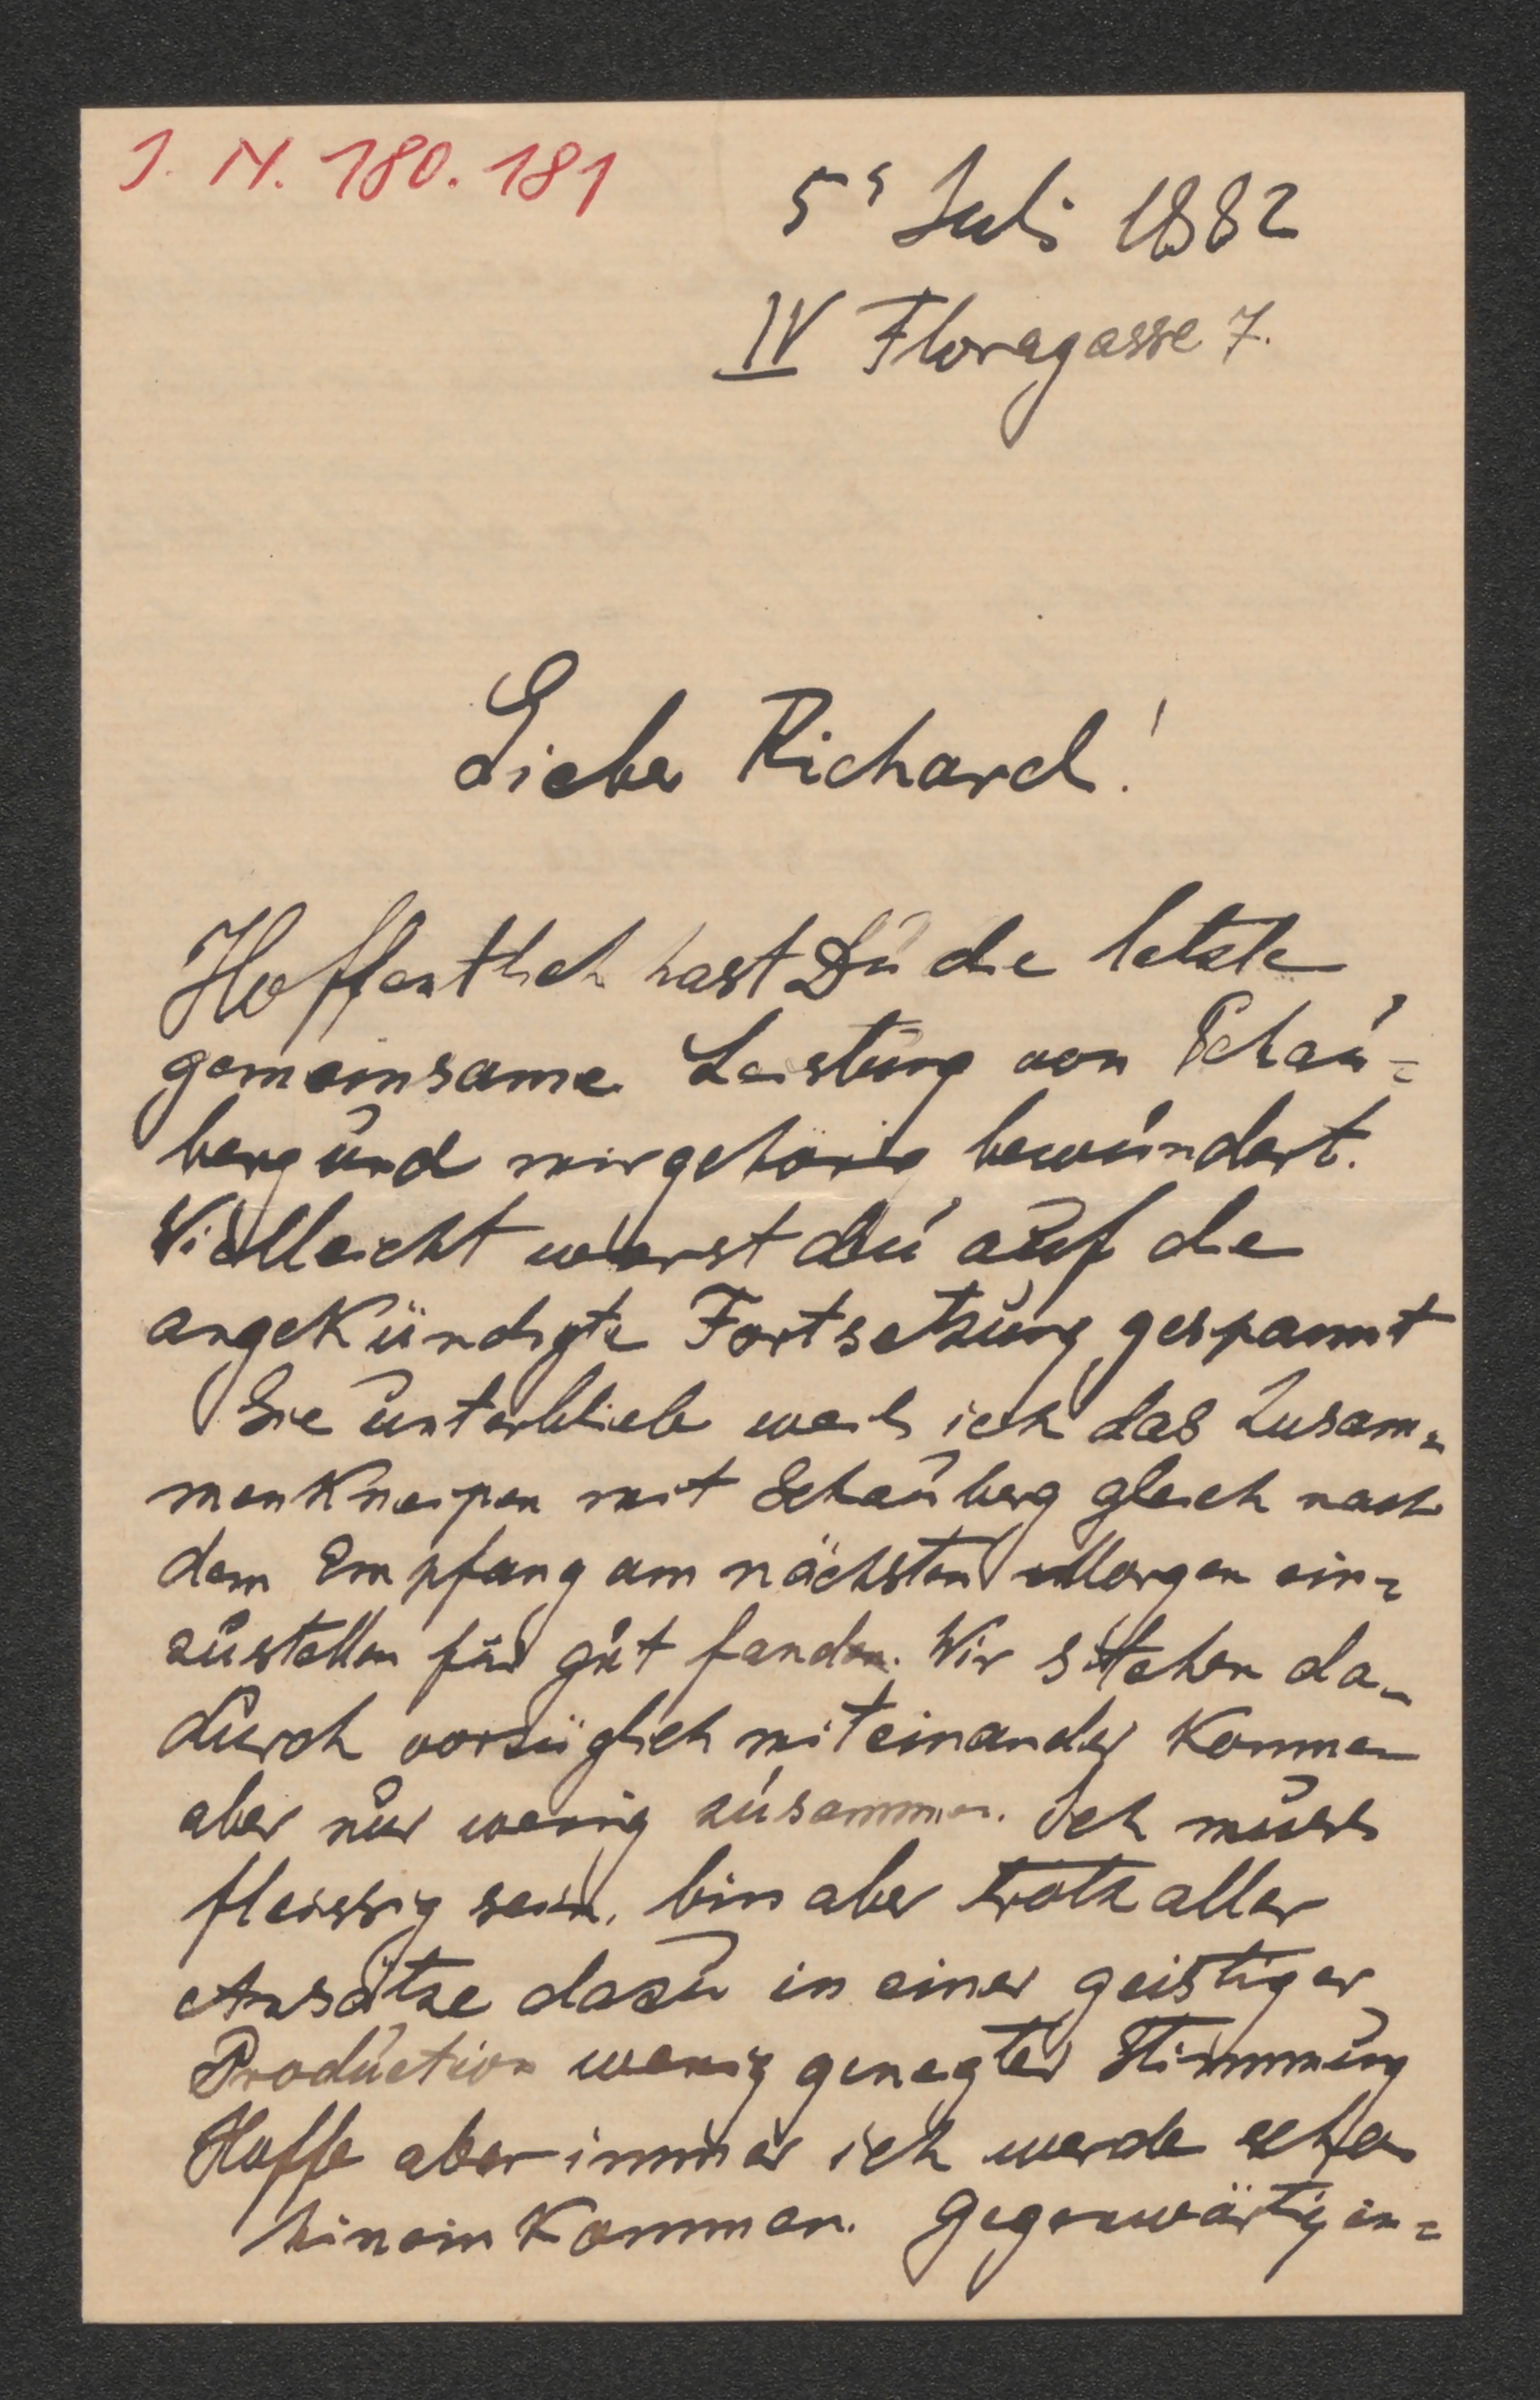 J. N. 180.181
5s Juli 1882
IV Floragasse 7.
Lieber Richard!
Hoffentlich hast Du die letzte
gemeinsame Leistung von Schau=
berg und mir gehörig bewundert.
Vielleicht warst du auf die
angekündigte Fortsetzung gespannt
Sie unterblieb weil ich das Zusam=
menkneipen mit Schauberg gleich nach
dem Empfang am nächsten Morgen ein=
zustellen für gut fanden. Wir stehen da=
durch vorzüglich miteinander kommen
aber nur wenig zusammen. Ich muss
fleissig sein, bin aber trotz aller
Ansätze dazu in einer geistiger
Production wenig geneigter Stimmung
Hoffe aber immer ich werde schon
hinein kommen. Gegenwärtig in=